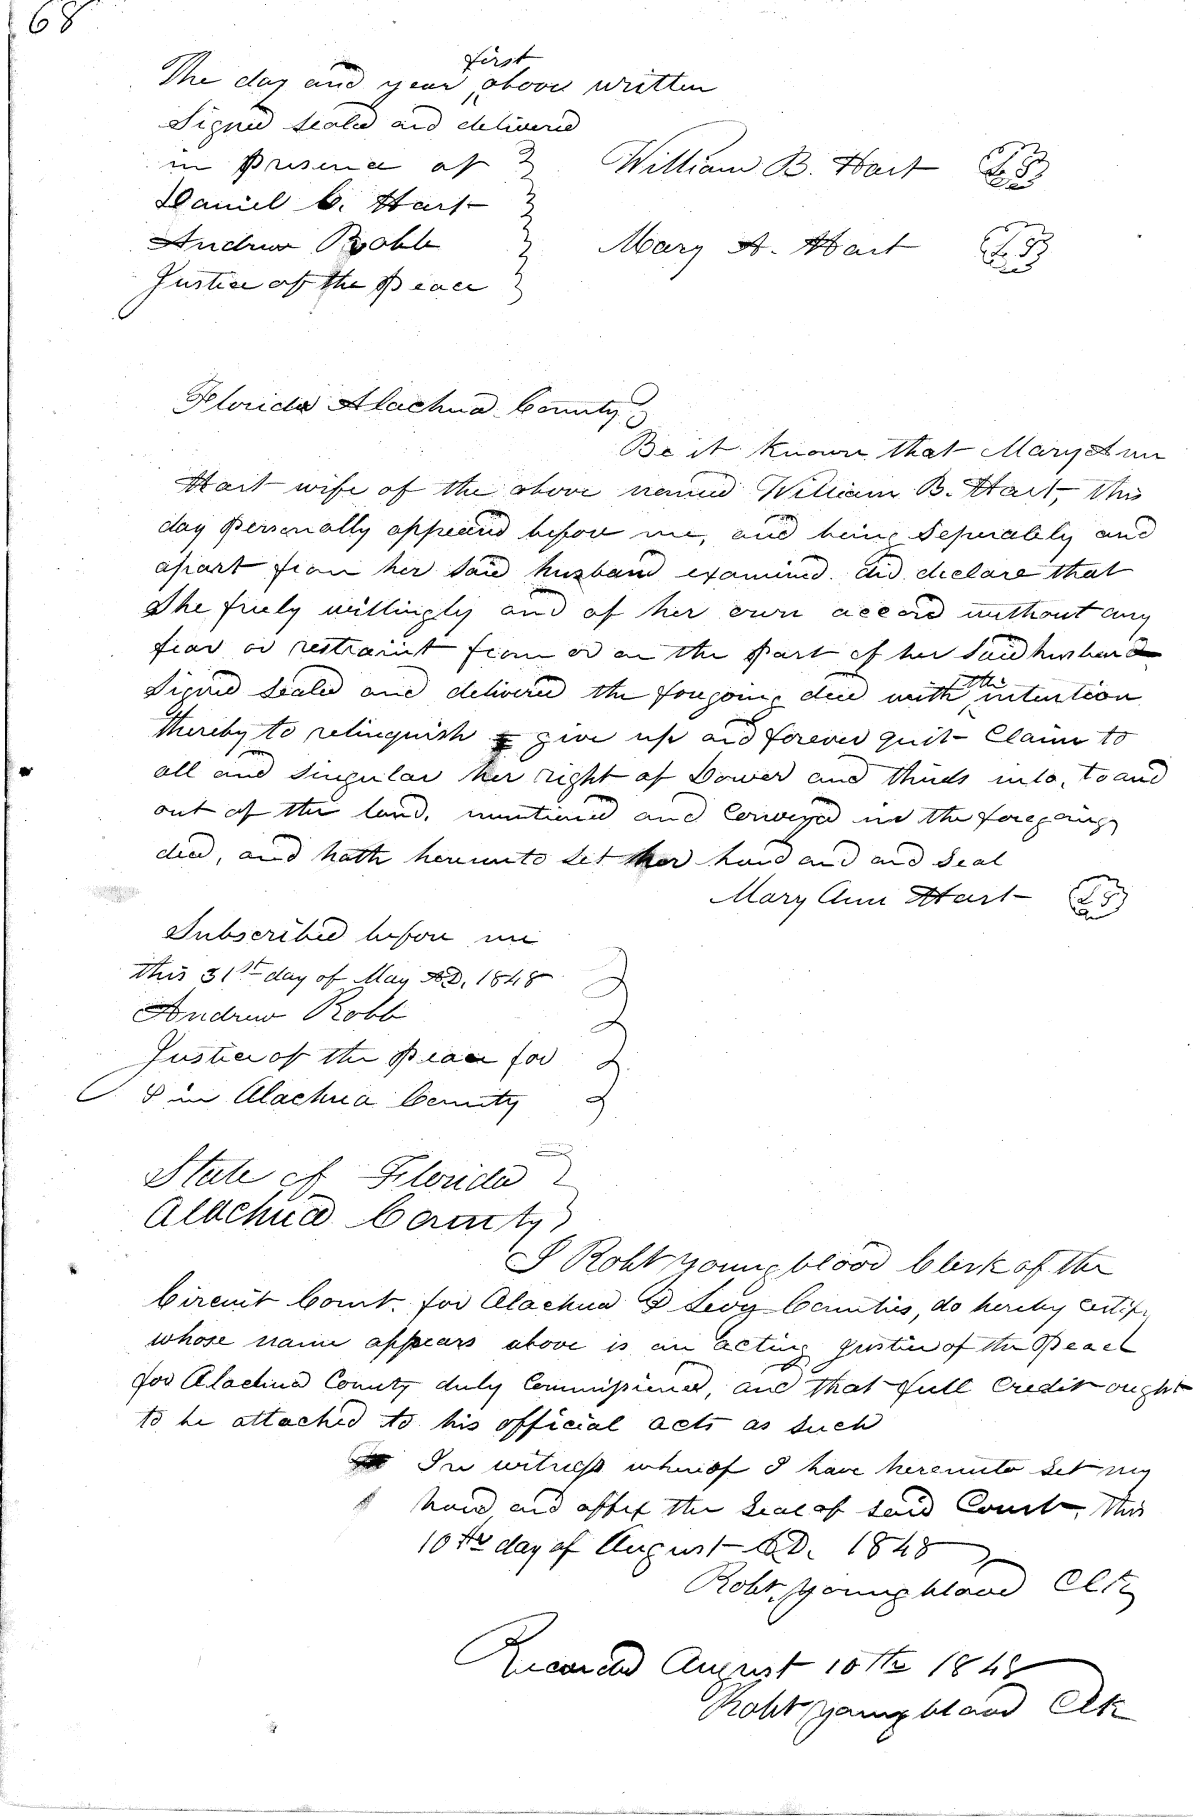 68
The day and year first above written
Signed sealed and delivered
in presence of
William B. Hart LS
Daniel C. Hart
Andrew Robb
Mary A. Hart LS
Justice of the Peace
Florida Alachua County
Be it known that Mary Ann
Hart wife of the above named William B. Hart, this
day personally appeared before me, and being Seperately and
apart from her said husband examined. did declare that
She freely willingly and of her own accord without any
fear or restraint from or on the part of her said husband
Signed sealed and delivered the foregoing deed with the intention
thereby to relinquish & give up and forever quit Claim to
all and singular her right of Dower and thirds into, to and
out of the land, mentioned and Conveyed in the foregoing
deed, and hath hereunto set her hand and and Seal
Mary Ann Hart LS
Subscribed before me
this 31st day of May AD. 1848
Andrew Robb
Justice of the Peace for
& in Alachua County
State of Florida
Alachua County
I Robt Youngblood Clerk of the
Circuit Court. for Alachua & Levy Counties, do hereby certify
whose name appears above is an acting Justice of the Peace
for Alachua County duly Commissioned, and that full Credit ought
to be attached to his official acts as such
In witness whereof I have hereunto set my
hand and affix the Seal of said Court, this
10th day of August AD. 1848
Robt. Youngblood Clk
Recorded August 10th 1848
Robt Youngblood Clk